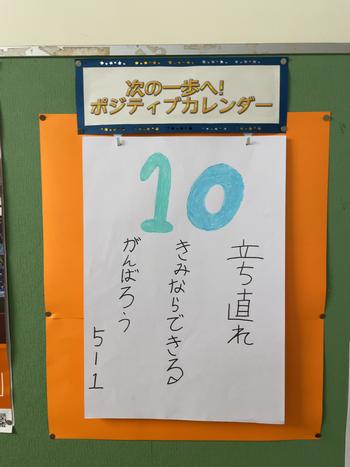 次の一歩へ!
ポジティブカレンダー
10
立ち直れ
きみならできる
がんばろう
5-1